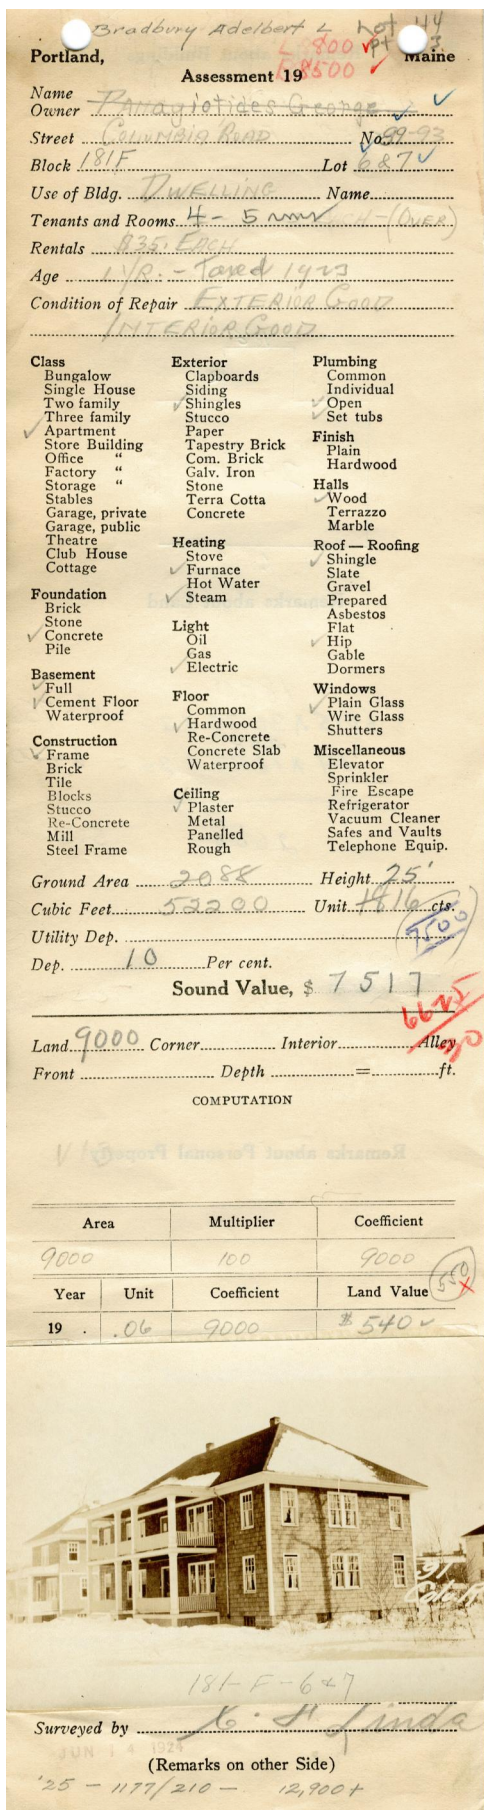 Bradbury Adelbert L Lot 44
L 800 pt 3
Portland, Maine
B 8500
Assessment 19
Name
Owner Panagiotides George
Street Columbia Road No 89-93
Block 181F Lot 6 & 7
Use of Bldg. Dwelling Name
Tenants and Rooms 4 - 5 rms Each - (Over)
Rentals $35. Each
Age 1 yr. - Taxed 1923
Condition of Repair Exterior Good
Interior Good
Class
Bungalow
Single House
Two family
Three family
Apartment
Store Building
Office "
Factory "
Storage "
Stables
Garage, private
Garage, public
Theatre
Club House
Cottage
Foundation
Brick
Stone
Concrete
Pile
Basement
Full
Cement Floor
Waterproof
Construction
Frame
Brick
Tile
Blocks
Stucco
Re-Concrete
Mill
Steel Frame
Exterior
Clapboards
Siding
Shingles
Stucco
Paper
Tapestry Brick
Com. Brick
Galv. Iron
Stone
Terra Cotta
Concrete
Heating
Stove
Furnace
Hot Water
Steam
Light
Oil
Gas
Electric
Floor
Common
Hardwood
Re-Concrete
Concrete Slab
Waterproof
Ceiling
Plaster
Metal
Panelled
Rough
Plumbing
Common
Individual
Open
Set tubs
Finish
Plain
Hardwood
Halls
Wood
Terrazzo
Marble
Roof — Roofing
Shingle
Slate
Gravel
Prepared
Asbestos
Flat
Hip
Gable
Dormers
Windows
Plain Glass
Wire Glass
Shutters
Miscellaneous
Elevator
Sprinkler
Fire Escape
Refrigerator
Vacuum Cleaner
Safes and Vaults
Telephone Equip.
Ground Area 2088 Height 25'
Cubic Feet 52200 Unit 16 cts.
7500
Utility Dep.
Dep. 10 Per cent.
Sound Value, $ 7517
6625
50
Land 9000 Corner Interior Alley
Front Depth = ft.
COMPUTATION
Area Multiplier Coefficient
9000 100 9000
Year Unit Coefficient Land Value 550
19 . .06 9000 $ 540
91
181-F-6&7
Surveyed by
JUN 14 1924
(Remarks on other Side)
'25 - 1177/210 - 12,900+